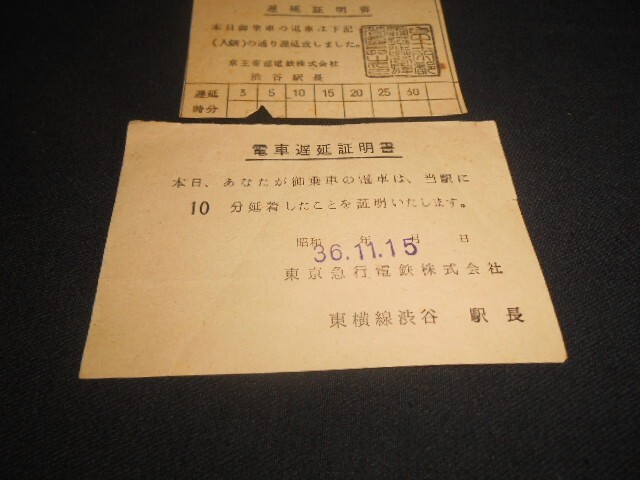 遅延証明書
本日御乗車の電車は下記
(入鋏)の通り遅延致しました。
京王帝都電鉄株式会社
渋谷駅長
遅延時分 3 5 10 15 20 25 60
電車遅延証明書
本日、あなたが御乗車の電車は、当駅に
10 分延着したことを証明いたします。
昭和 年 月 日
36.11.15
東京急行電鉄株式会社
東横線渋谷 駅長